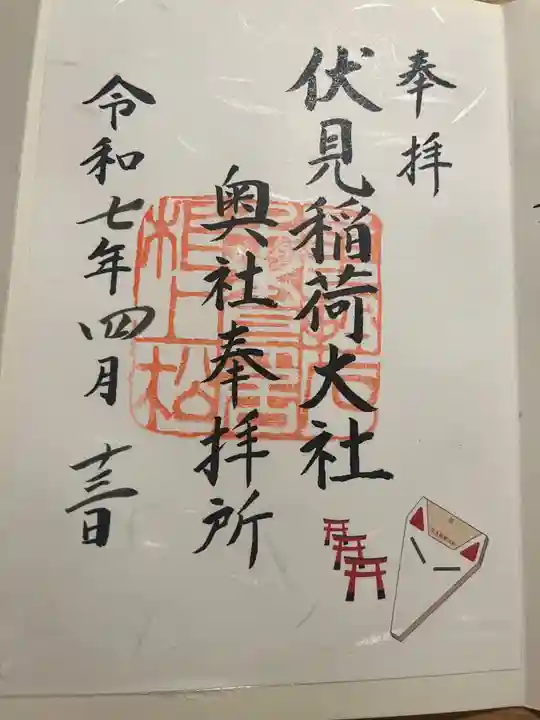 奉拝
伏見稲荷大社
奥社奉拝所
令和七年四月十三日